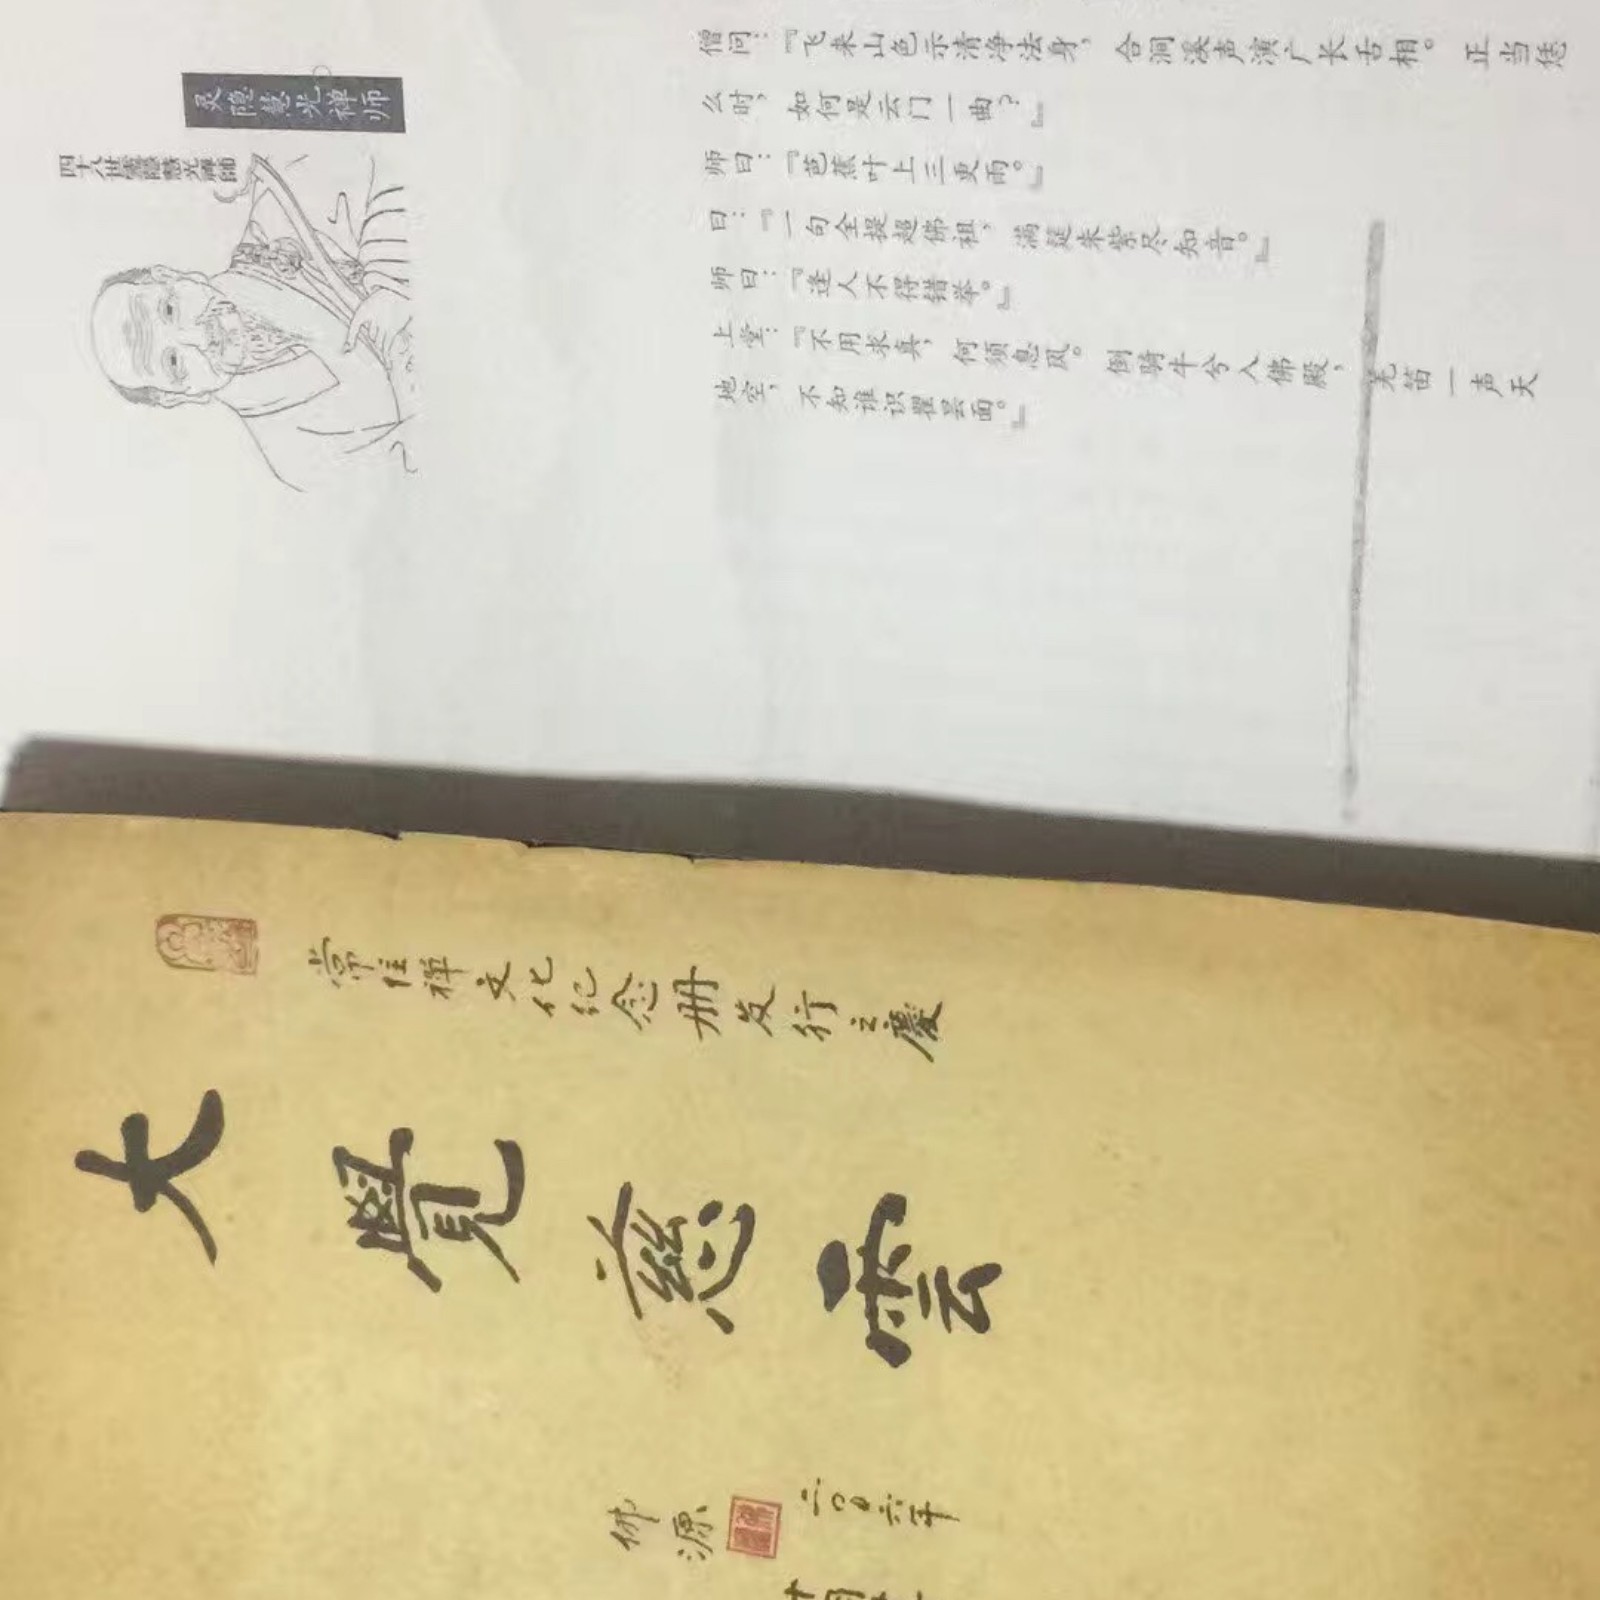 灵隐慧光禅师
四十八世靈隱慧光禪師
僧问：『飞来山色示清净法身，合涧溪声演广长舌相。正当恁
么时，如何是云门一曲？』
师曰：『芭蕉叶上三更雨。』
曰：『一句全提超佛祖，满筵朱紫尽知音。』
师曰：『逢人不得错举。』
上堂：『不用求真，何须息见。倒骑牛兮入佛殿，羌笛一声天
地空，不知谁识瞿昙面。』
常住禅文化纪念册发行之慶
大覺慈雲
佛源
二00六年